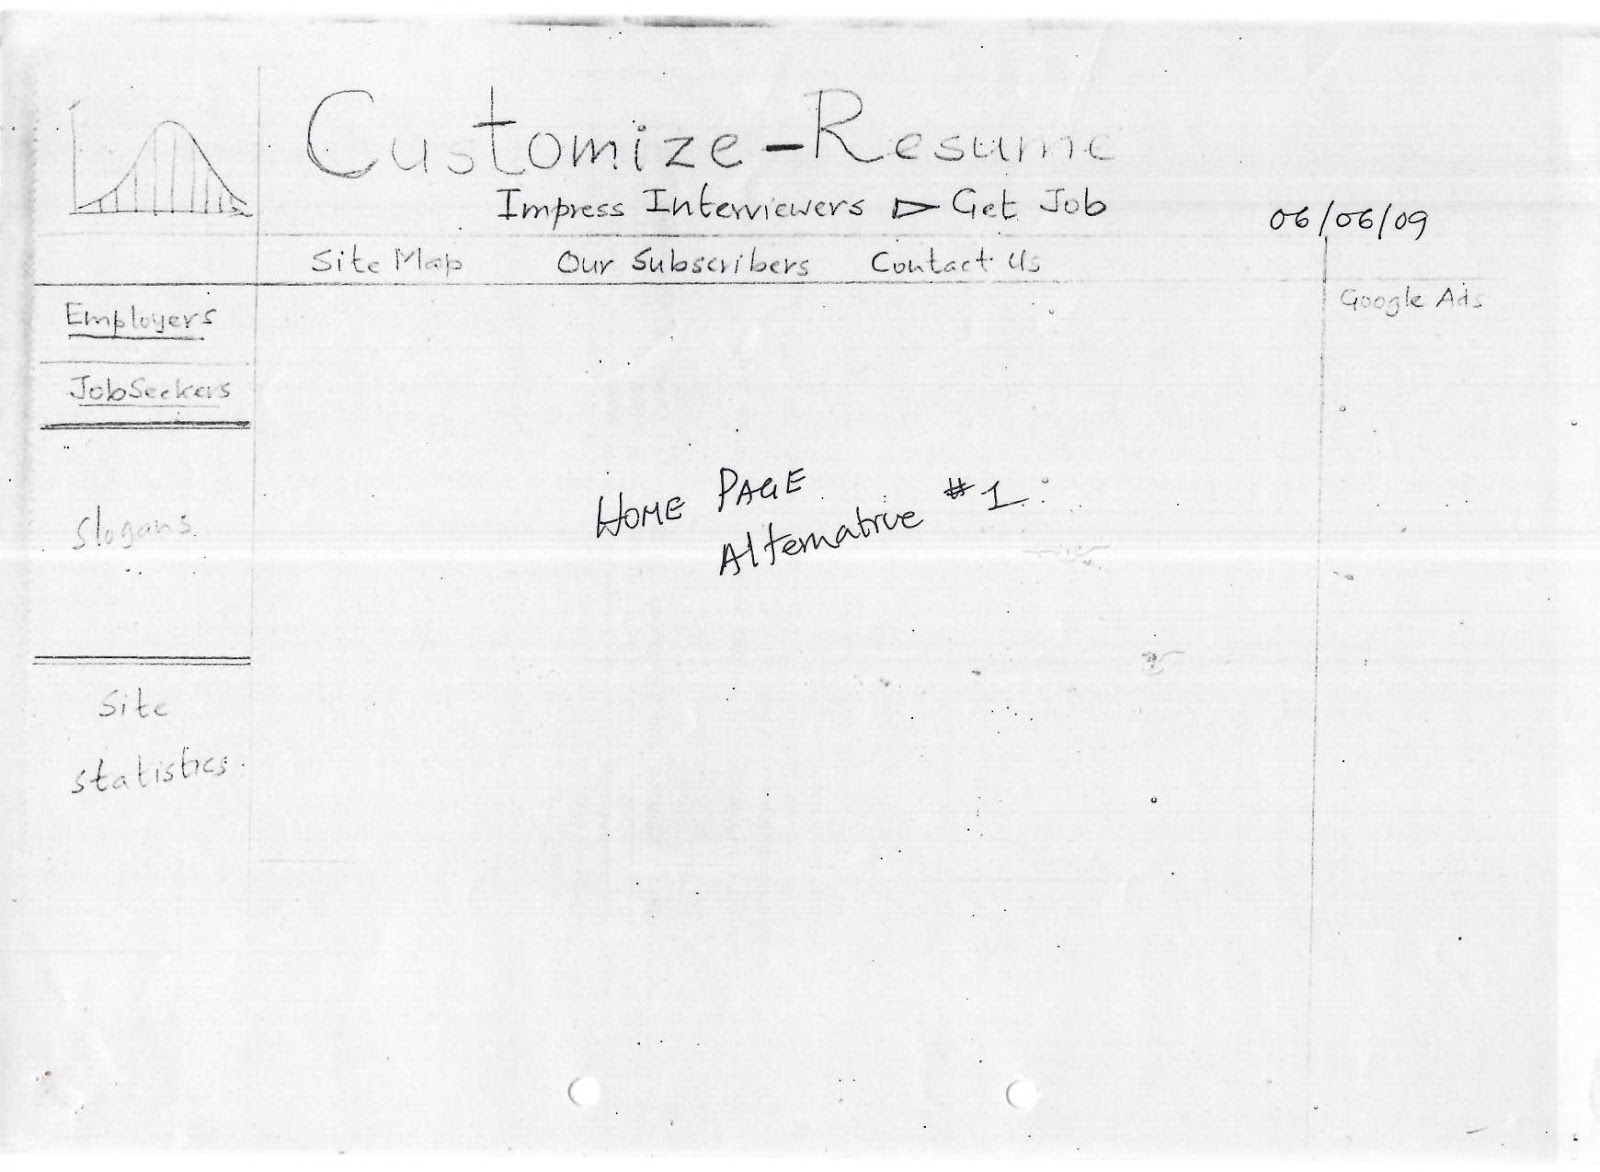 Customize-Resume
Impress Interviewers ▻ Get Job
06/06/09
Site Map Our Subscribers Contact Us
Google Ads
Employers
JobSeekers
HOME PAGE
Alternative #1
Slogans
Site
statistics